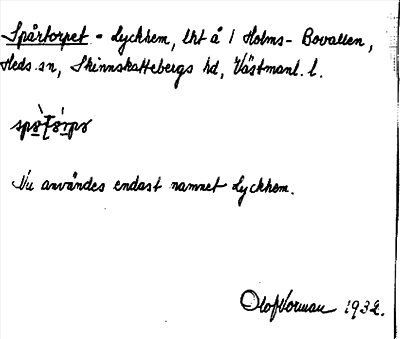 Spårtorpet = Lyckhem, lht å 1 Holms-Bovallen,
Heds sn, Skinnskattebergs hd, Västmanl. l.
Nu användes endast namnet Lyckhem.
Olof Vorman 1932.